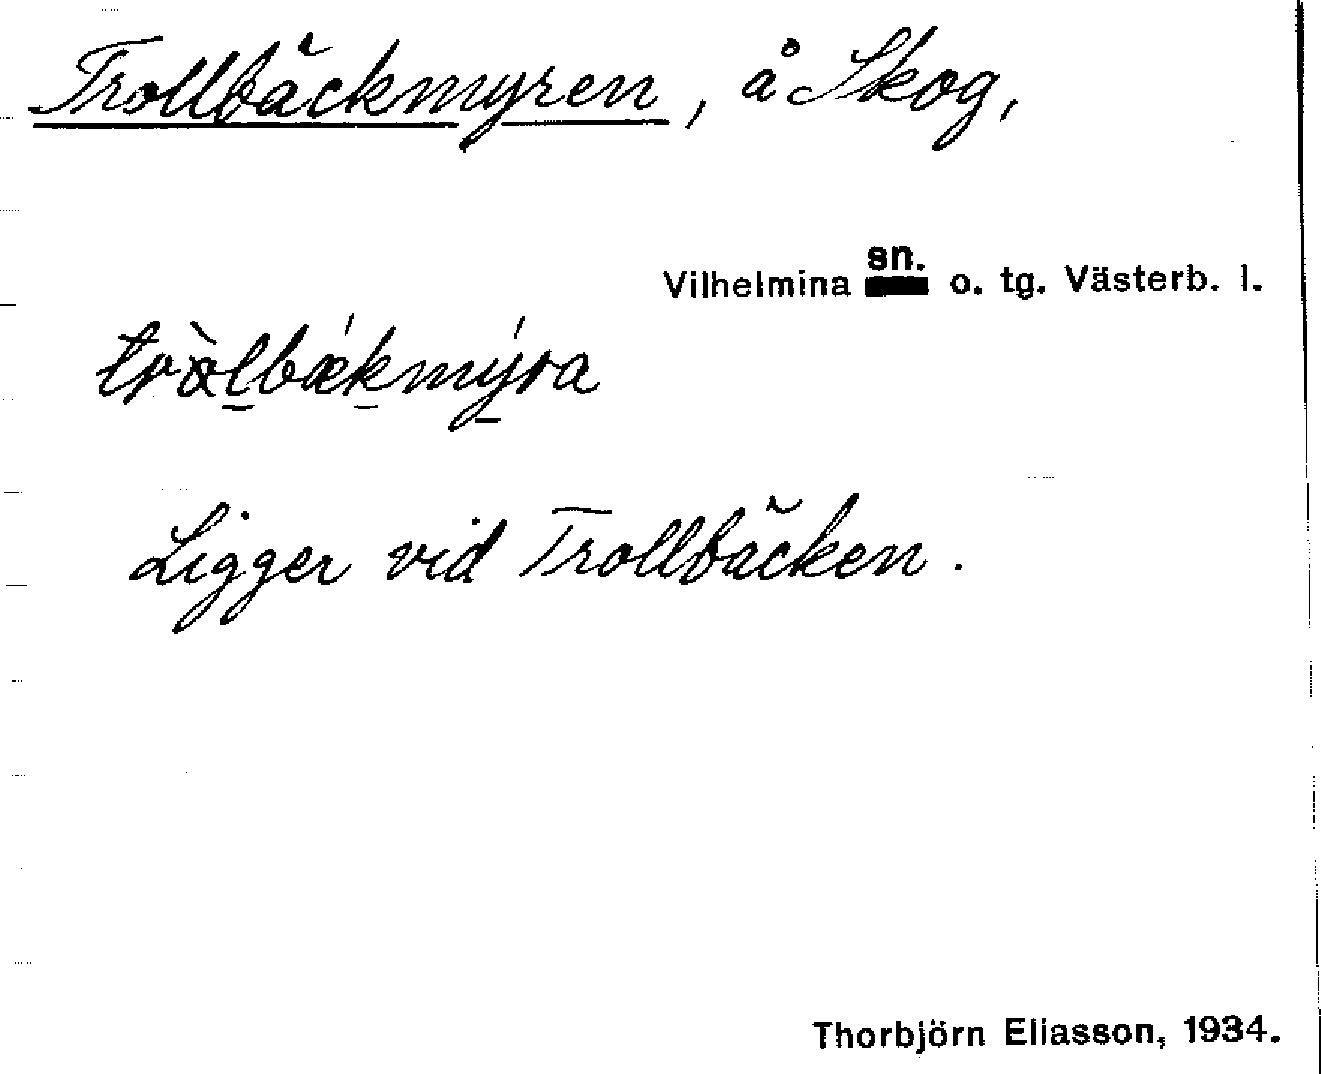 Trollbäckmyren, å Skog,
Vilhelmina sn. o. tg. Västerb. l.
Ligger vid Trollbäcken.
Thorbjörn Eliasson, 1934.